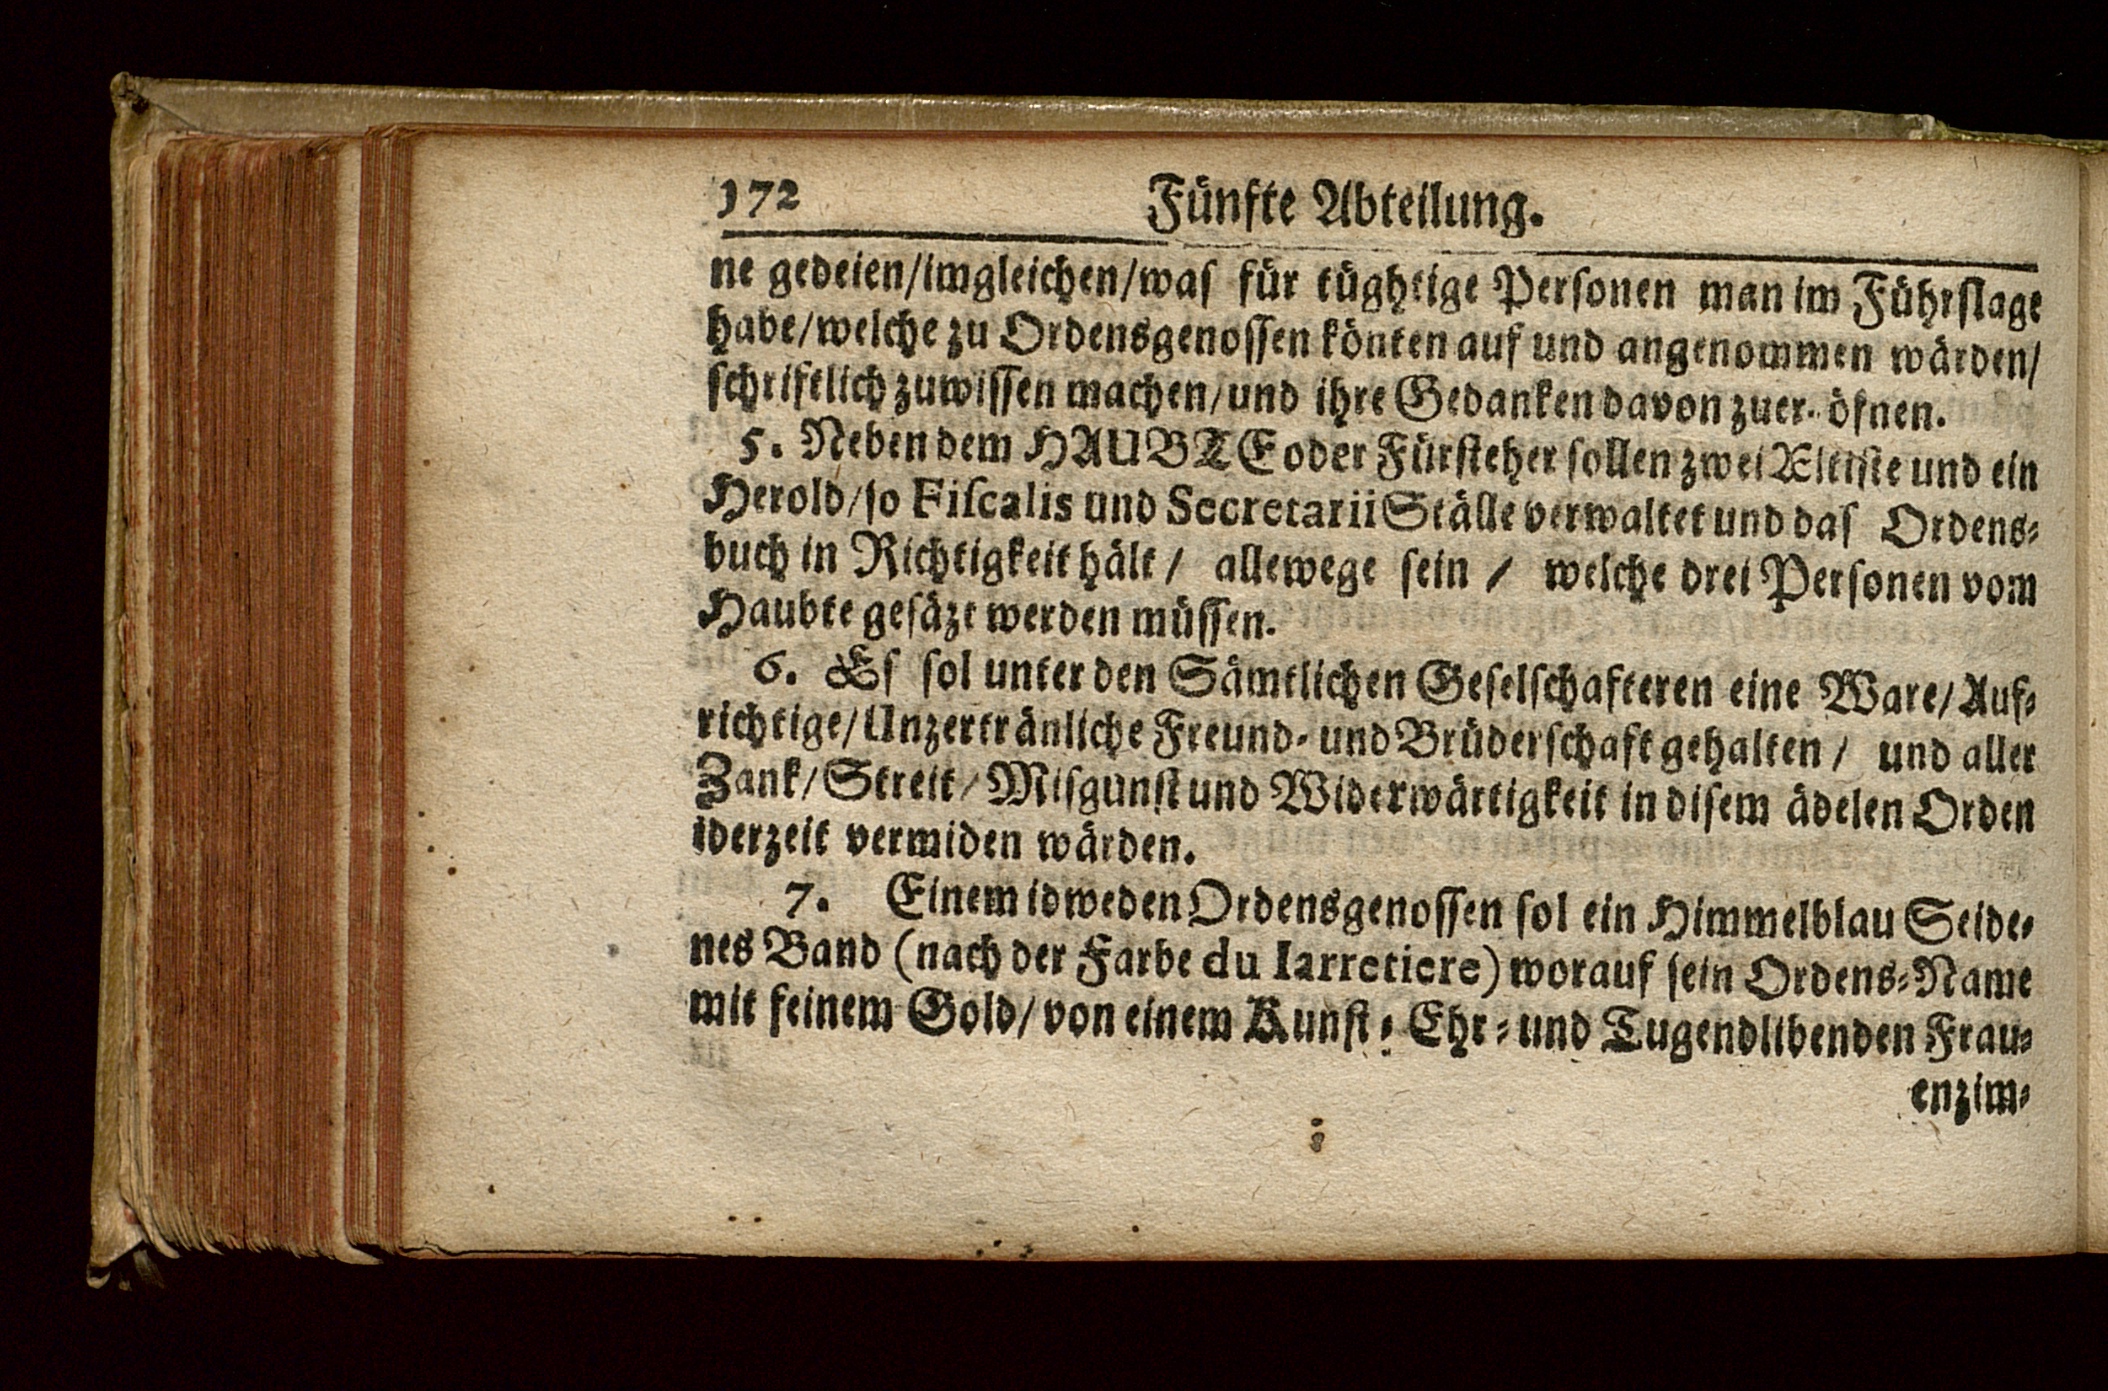 172 Fünfte Abteilung.
ne gedeien/imgleichen/was für tüghtige Personen man im Führslage
habe/welche zu Ordensgenossen könten auf und angenommen wärden/
schriftlich zuwissen machen/und ihre Gedanken davon zuer-öfnen.
5. Neben dem HAUBTE oder Fürsteher sollen zwei Ælteste und ein
Herold/so Fiscalis und Secretarii Ställe verwaltet und das Ordens-
buch in Richtigkeit hält/ allewege sein / welche drei Personen vom
Haubte gesäzt werden müssen.
6. Es sol unter den Sämtlichen Geselschafteren eine Ware/Auf-
richtige/Unzertränliche Freund- und Brüderschaft gehalten/ und aller
Zank/Streit/Misgunst und Widerwärtigkeit in disem ädelen Orden
iderzeit vermiden wärden.
7. Einem idweden Ordensgenossen sol ein Himmelblau Seide-
nes Band (nach der Farbe du Iarretiere) worauf sein Ordens-Name
mit feinem Gold/von einem Kunst- Ehr- und Tugendlibenden Frau-
enzim-